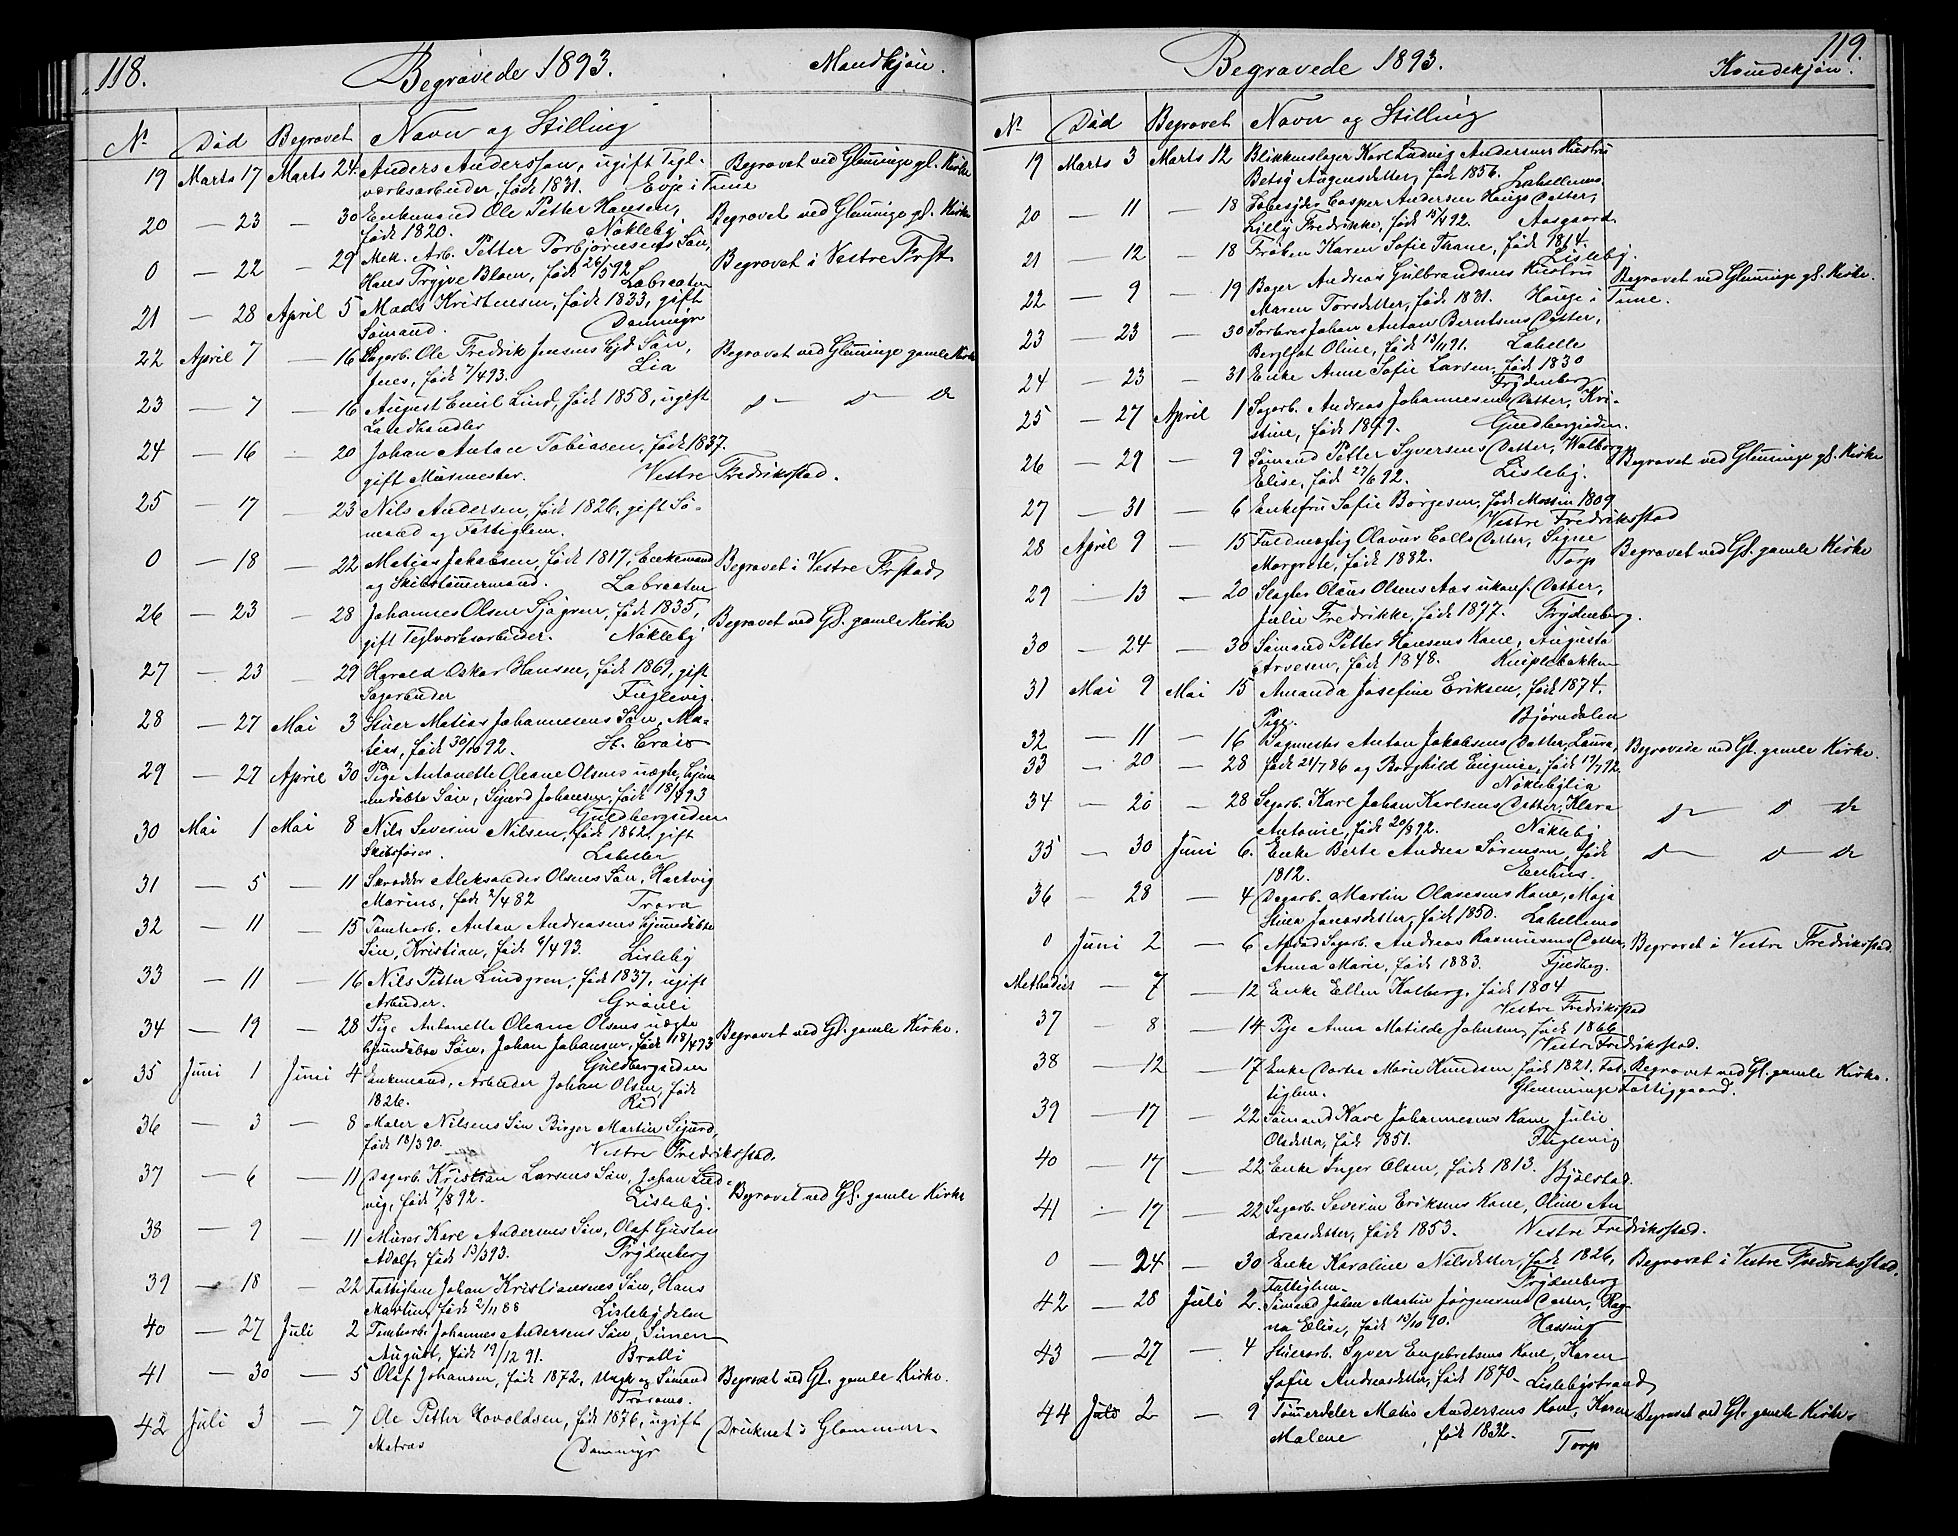 118.
Begravede 1893.
Mandkjøn.
No
Død
Begravet
Navn og Stilling
19 Marts 17 Marts 24. Anders Anderssøn, ugift Tegl- Begravet ved Glemminge gl. Kirke
værksarbeider, født 1831. Evje i Tune
20 — 23 — 30 Enkemand Ole Petter Hansen, Begravet ved Glemminge gl. Kirke
født 1820. Nøkleby
0 — 22 — 29 Mek. Arb. Petter Torbjørnsens Søn, Begravet i Vestre Frst
Hans Trygve Bloen, født 26/5 92 Labraaten
21 — 28 April 5 Mads Kristensen, født 1833, gift
Sømand. Dammyr
22 April 7 — 16 Sagarb. Ole Fredrik Jensens hjd. Søn, Begravet ved Glemminge gamle Kirke
Jens, født 7/4 93. Lia
23 — 7 — 16 August Emil Lind, født 1858, ugift d— d— do
Landhandler
24 — 16 — 20 Johan Anton Tobiasen, født 1837.
gift Murmester. Vestre Fredriksstad.
25 — 17 — 23 Nils Andersen, født 1826, gift Sø-
mand og Fattiglem.
0 — 18 — 22 Matias Jakobsen, født 1817, Enkemand Begravet i Vestre Frstad
og Skibstømmermand. Labraaten
26 — 23 — 28 Johannes Olsen Sjøgren, født 1835, Begravet ved Gl. gamle Kirke
gift Teglværksarbeider. Nøkleby
27 — 23 — 29 Harald Oskar Hansen, født 1869, gift
Sagarbeider Fuglevig.
28 — 27 Mai 3 Stuer Matias Johannesens Søn, Ma-
tias, født 30/10 92. St. Croix
29 — 27 April 30 Pige Antonette Oleane Olsens uægte, hjem
medøbte Søn, Sigurd Johansen, født 18/4 93
Guldbergsiden
30 Mai 1 Mai 8 Nils Severin Nilsen, født 1862, gift
Skibsfører. Labellen
31 — 5 — 11 Skrædder Aleksander Olsens Søn, Hartvig
Marius, født 2/4 82 Trara
32 — 11 — 15 Tomtearb. Anton Andreasens hjemmedøbte
Søn, Kristian, født 6/4 93. Lisleby
33 — 11 — 16 Nils Petter Lindgren, født 1837, ugift
Arbeider. Grønli
34 — 19 — 28 Pige Antonette Oleane Olsens uægte Begravet ved Gl. gamle Kirke.
hjemdøbte Søn, Johan Johansen, født 18/4 93
Guldbergsiden
35 Juni 1 Juni 4 Enkemand, Arbeider Johan Olsen, født
1826. Rød
36 — 3 — 8 Maler Nilsens Søn Birger Martin Sigurd,
født 18/3 90. Vestre Fredriksstad.
37 — 6 — 11 Dagarb. Kristian Larsens Søn, Johan Lud-
vig, født 7/8 92. Lisleby. Begravet ved Gl. gamle Kirke
38 — 9 — 11 Murer Karl Andersens Søn, Olaf Gustav
Adolf, født 13/3 93. Frydenberg
39 — 18 — 22 Fattiglem Johan Kristiansens Søn, Hans
Martin, født 2/11 88 Lislebydalen
40 — 27 Juli 2 Tomtearb. Johannes Andersens Søn, Simen
August, født 19/12 91. Bratli
41 — 30 — 5 Olaf Johansen, født 1872, Ungk og Sømand Begravet ved Gl. gamle Kirke.
Trosvik.
42 Juli 3 — 7 Ole Petter Hovoldsen, født 1876, ugift Druknet i Glommen.
Matros Dammyr
119.
Begravede 1893.
Kvindekjøn.
No
Død
Begravet
Navn og Stilling
19 Marts 3 Marts 12 Blikkenslager Karl Ludvig Andersens Hustru
Betsy Augensdatter, født 1856. Labellems.
20 — 11 — 18 Løbesjks Casper Andersen Haugs Datter,
Lilly Fredrikke, født 13/4 92. Aasgaard
21 — 12 — 18 Frøken Karen Sofie Thane, født 1814.
Lisleby.
22 — 9 — 19 Bager Andreas Gulbrandsens Hustru Begravet ved Glemminge gl. Kirke.
Maren Torsdatter, født 1831. Hauge i Tune.
23 — 23 — 30 Sorterer Johan Anton Berntsens Datter,
Bergljot Oline, født 13/11 91. Labelle
24 — 23 — 31 Enke Anne Sofie Larsen, født 1830
Frydenberg
25 — 27 April 1 Sagarb. Andreas Johannesens Datter, Kri-
stine, født 1879. Guldbergsiden.
26 — 29 — 9 Sømand Petter Syversens Datter, Valborg Begravet ved Glemminge gl. Kirke
Elise, født 27/6 92. Lisleby.
27 — 31 — 6 Enkefru Sofie Børgesen, født Mossin 1809
Vestre Fredriksstad
28 April 9 — 15 Fuldmægtig Olavur Colls Datter, Signe Begravet ved Gl. gamle Kirke
Margrete, født 1882. Torp
29 — 13 — 20 Slagter Olaus Olsens Aas ukonf. Datter,
Julie Fredrikke, født 1877. Frydenberg.
30 — 24 — 30 Sømand Petter Hansens Kone, Augusta
Arvesen, født 1848. Kniplebakken
31 Mai 9 Mai 15 Amanda Josefine Eriksen, født 1874.
Pige. Bjørndalen
32 — 11 — 16 Sagmester Anton Jakobsens Datter, Laura, Begravede ved Gl. gamle Kirke.
33 — 20 — 28 født 21/7 86 og Borghild Eugenie, født 17/7 92.
Nøklebylia
34 — 20 — 28 Sagarb. Karl Johan Karlsens Datter, Klara d— d do
Antonie, født 20/8 92. Nøkleby
35 — 30 Juni 6. Enke Berte Andrea Sørensen, født d— d do
1812. Enhus.
36 — 28 — 4 Dagarb. Martin Olavesens Kone, Maja
Stina Jonasdatter, født 1850. Labellems
0 Juni 2 — 6 Afdød Sagarb. Andreas Rasmusens Datter, Begravet i Vestre Fredriksstad
Anna Marie, født 1883. Fjeldberg.
Methodist — 7 — 12 Enke Ellen Kolberg, født 1804
Vestre Fredriksstad
37 — 8 — 14 Pige Anna Matilde Johnsen, født 1866
Vestre Fredriksstad.
38 — 12 — 17 Enke Dorthe Marie Knudsen, født 1821. Fat- Begravet ved Gl. gamle Kirke.
tiglem. Glemminge Fattiggaard.
39 — 17 — 22 Sømand Karl Johannesens Kone, Julie
Olsdatter, født 1851. Fuglevig
40 — 17 — 22 Enke Inger Olsen, født 1813. Bjølstad.
41 — 17 — 22 Sagarb. Severin Eriksens Kone, Oline An
dreasdatter, født 1853. Vestre Fredriksstad.
0 — 24 — 30 Enke Karoline Nilsdatter, født 1826, Begravet i Vestre Fredriksstad.
Fattiglem. Frydenberg
42 — 28 Juli 2 Sømand Johan Martin Jørgensens Datter, Rag-
na Elise, født 19/10 90. Hassing
43 — 27 — 4 Stuerarb. Syver Engebretsens Kone, Karen
Sofie Andreasdatter, født 1870. Lislebystrand
44 Juli 2 — 9 Tømerdeler Mats Andersens Kone, Karen Begravet ved Gl. gamle Kirke.
Malene , født 1832. Torp